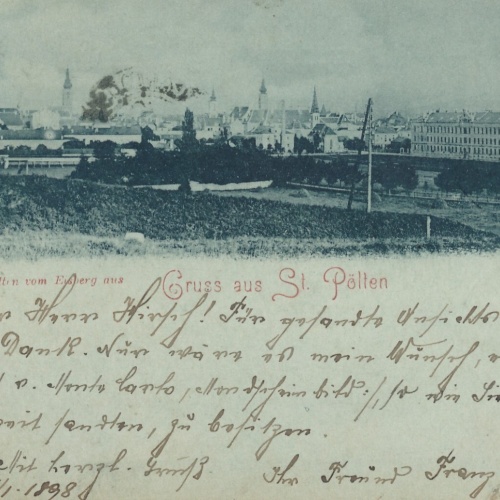 vom Eisberg aus
Gruss aus St. Pölten
Herr Hirsch! Für gesandte Ansichts
Dank. Nur wäre es mein Wunsch,
v. Monte Carlo, Mondscheinbild :/, so wie Sie
sandten, zu besitzen.
Mit herzl. Gruß. Ihr Freund Franz
1. 1898